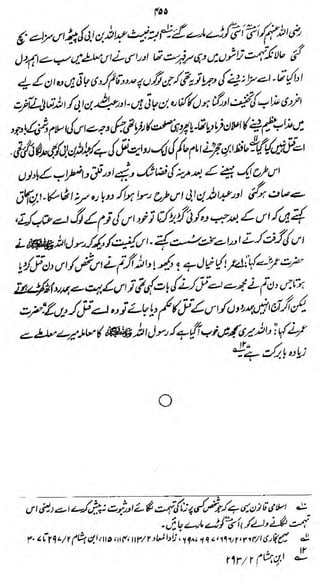 ۴۵۵
رضی اللہ عنہم کو اسّی اسّی کوڑے مارے گئے۔ البتہ خبیث عبداللہ بن ابی کی پیٹھ اس سزا سے بچ
گئی حالانکہ تہمت تراشوں میں وہی سرفہرست تھا اور اسی نے اس معاملے میں سب سے اہم رول
ادا کیا تھا۔ اسے سزا نہ دینے کی وجہ یا تو یہ تھی کہ جن لوگوں پر حدود قائم کر دی جاتی ہیں وہ ان کے لیے
اخروی عذاب کی تخفیف اور گناہوں کا کفارہ بن جاتی ہیں۔ اور عبداللہ بن ابی کو اللہ تعالیٰ نے آخرت
میں عذاب عظیم دینے کا اعلان فرما دیا تھا۔ یا پھر وہی مصلحت کارفرما تھی جس کی وجہ سے اس کی اسلام دشمنی کے باوجود
اسے قتل نہیں کیا گیا۔ حافظ ابن حجر نے امام حاکم کی ایک روایت نقل کی ہے کہ عبداللہ بن ابی کو بھی حد لگائی گئی تھی۔
اس طرح ایک مہینے کے بعد مدینہ کی فضا شک و شبہے اور قلق و اضطراب کے بادلوں
سے صاف ہو گئی اور عبداللہ بن ابی اس طرح رسوا ہوا کہ دوبارہ سر نہ اٹھا سکا۔ ابن اسحٰق
کہتے ہیں کہ اس کے بعد جب وہ کوئی گڑبڑ کرتا تو خود اس کی قوم کے لوگ اسے عتاب کرتے،
اس کی گرفت کرتے اور اسے سخت سست کہتے۔ اس کیفیت کو دیکھ کر رسول اللہ ﷺ نے
حضرت عمرؓ سے کہا: اے عمر! کیا خیال ہے؟ دیکھو! واللہ اگر تم نے اس شخص کو اس دن قتل کر دیا
ہوتا جس دن تم نے مجھ سے اسے قتل کرنے کی بات کہی تھی تو اس کے بہت سے ہمدرد اٹھ کھڑے ہوتے
لیکن اگر آج انہیں ہمدردوں کو اس کے قتل کا حکم دیا جائے تو وہ اسے قتل کر دیں گے۔ حضرت
عمرؓ نے کہا: واللہ میری سمجھ میں خوب آ گیا ہے کہ رسول اللہ ﷺ کا معاملہ میرے معاملے سے
زیادہ بابرکت ہے۔ ۱۲
اسلامی قانون یہی ہے کہ جو شخص کسی پر زنا کی تہمت لگائے اور ثبوت نہ پیش کرے اسے (یعنی اس
تہمت لگانے والے کو) اسّی کوڑے مارے جائیں۔
صحیح بخاری ۱/۳۶۴، ۲/۶۹۶، ۶۹۷، ۶۹۸، زاد المعاد ۲/۱۱۳، ۱۱۴، ۱۱۵، ابن ہشام ۲/۲۹۷ تا ۳۰۷
۱۲ ابن ہشام ۲/۲۹۳